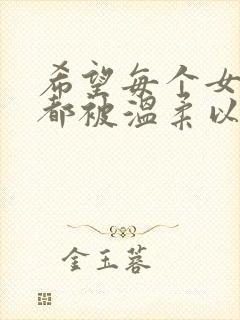 希望每个女
都被温柔以
金玉蓉